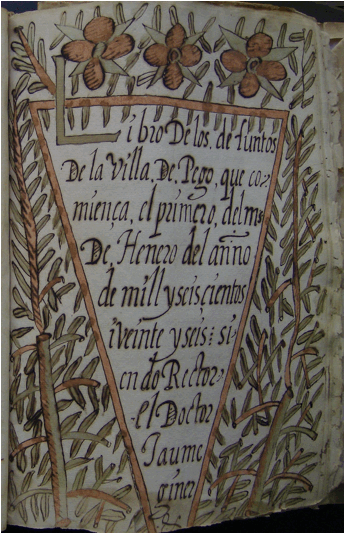 Libro De los, de funtos
De la Villa, De, Pego, que co-
miença, el primero, del ms
De, Henero del anño
de mill y seis cientos
i veinte y seis: si-
en do Rector-
el Doctor
Jaume
giner